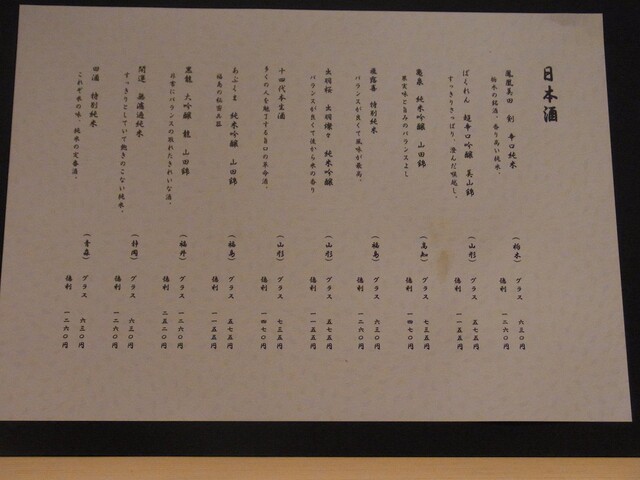 日本酒
鳳凰美田 剣 辛口純米
栃木の銘酒。香り高い純米。
（栃木） グラス 六三〇円
徳利 一二六〇円
ばくれん 超辛口吟醸 美山錦
すっきりさっぱり、澄んだ喉越し。
（山形） グラス 五七五円
徳利 一一五五円
亀泉 純米吟醸 山田錦
果実味と旨みのバランスよし
（高知） グラス 七三五円
徳利 一四七〇円
飛露喜 特別純米
バランスが良くて風味が最高。
（福島） グラス 六三〇円
徳利 一二六〇円
出羽桜 出羽燦々 純米吟醸
バランスが良くて後から米の香り
（山形） グラス 五七五円
徳利 一一五五円
十四代本生酒
多くの人を魅了する旨口の革命酒。
（山形） グラス 七三五円
徳利 一四七〇円
あぶくま 純米吟醸 山田錦
福島の秘蔵品
（福島） グラス 五七五円
徳利 一一五五円
黒龍 大吟醸 龍 山田錦
非常にバランスの取れたきれいな酒。
（福井） グラス 一二六〇円
徳利 二五二〇円
開運 無濾過純米
すっきりとしていて飽きのこない純米。
（静岡） グラス 六三〇円
徳利 一二六〇円
田酒 特別純米
これぞ米の味、純米の定番酒。
（青森） グラス 六三〇円
徳利 一二六〇円